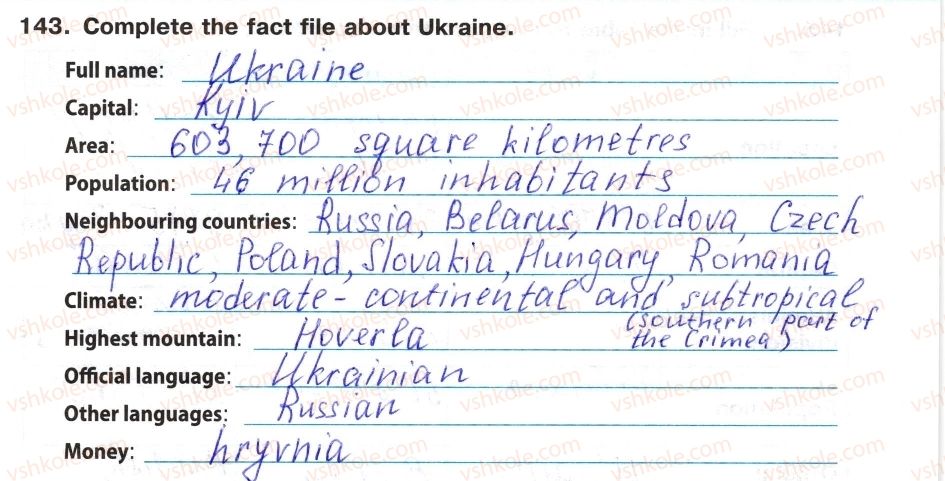 143. Complete the fact file about Ukraine.
Full name: Ukraine
Capital: Kyiv
Area: 603,700 square kilometres
Population: 46 million inhabitants
Neighbouring countries: Russia, Belarus, Moldova, Czech
Republic, Poland, Slovakia, Hungary, Romania
Climate: moderate - continental and subtropical
(southern part of
the Crimea)
Highest mountain: Hoverla
Official language: Ukrainian
Other languages: Russian
Money: hryvnia
vshkole.com